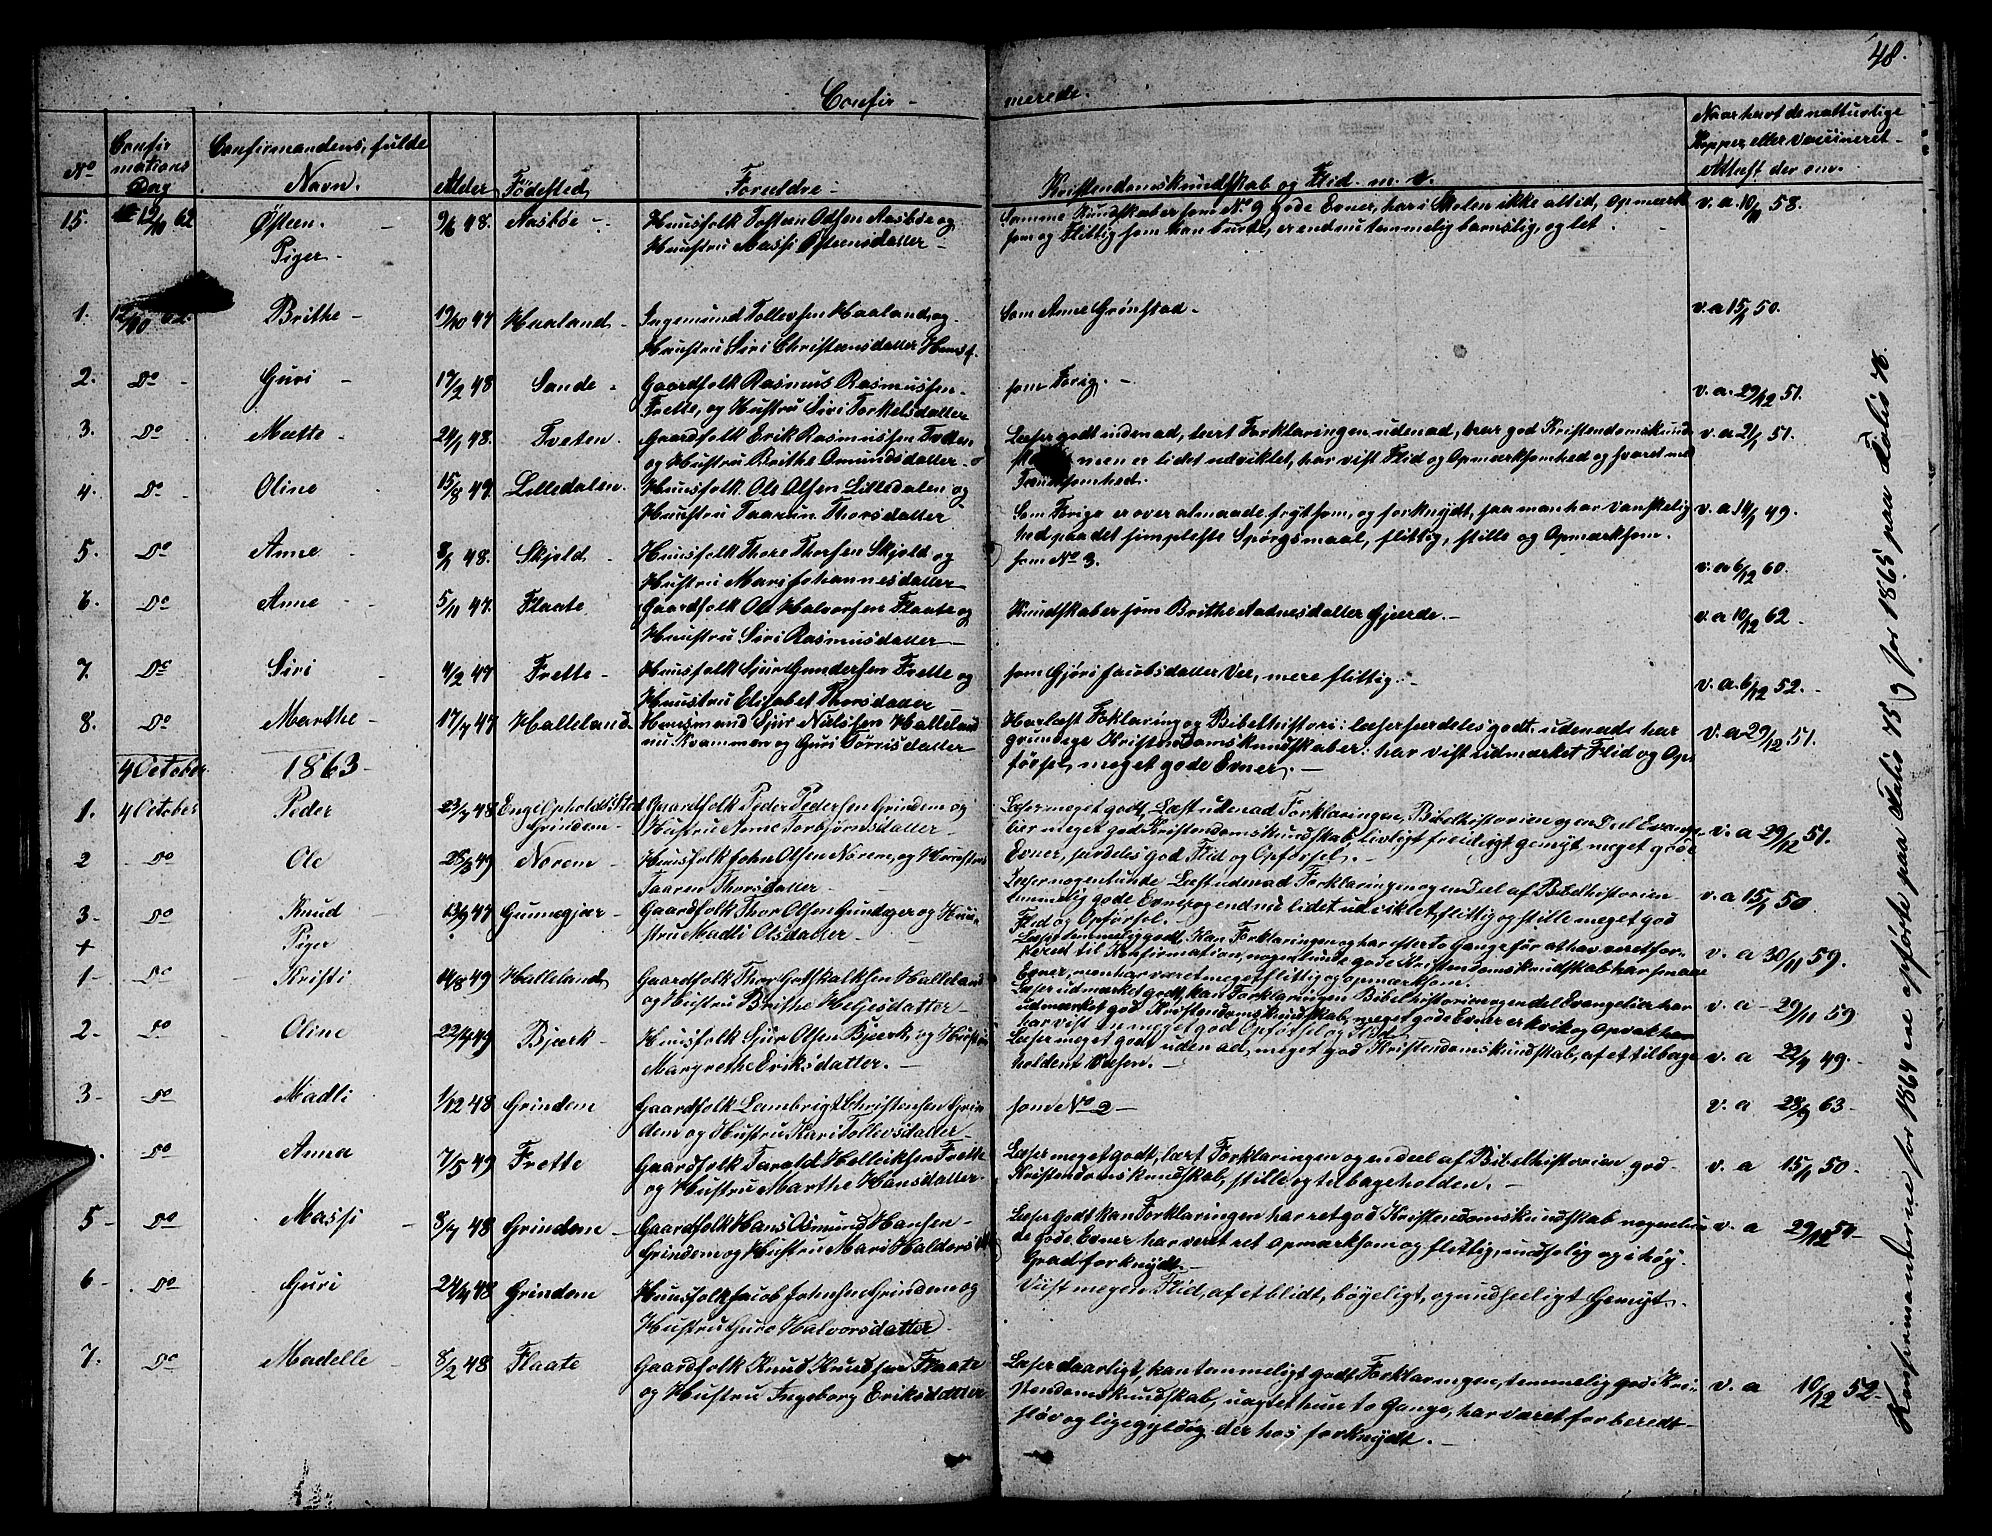 48.
Confirmerede.
No
Confirmations Dag
Confirmandens fulde Navn.
Alder
Födested
Foreldre
Kristendomskundskab og Flid. m. v.
Naar havt de natturlige Kopper, eller Vaccineret Attest derom.
15. 12/10 62 Østeen. 9/6 48. Aasböe Huusfolk Tosten Odsen Aasböe og
Hustru Massi Østensdatter
Samme Kundskaber som No 9 gode Evner, har i Skolen ikke altid, Opmærk
som og Flittig som han burde, er endnu temmelig barnslig, og let.
v. a. 10/9 58.
Piger
1. 12/10 62. Brithe 19/10 47 Haaland Ingemund Tollevsen Haaland, og
Huustru Siri Christensdatter Huusf.
Som Anne Grönstad.
v. a 15/1 50.
2. Do Guri 17/2 48 Sande Gaardfolk Rasmus Rasmussen
Frette, og Hustru Siri Torkelsdatter
som Forig.
v. a. 29/12 51.
3. Do Mætte 24/1 48. Tveten. Gaardfolk Erik Rasmussen Tveten
og Hustru Brithe Omundsdatter
Læser godt indenad, lært Forklaringen udenad, har god Kristendomskund
men er lidet udviklet, har vist Flid og Opmærksomhed og svaret med
Tænksomhed.
v. a 21/1 51.
4. Do Oline 15/8 49. Lilledalen. Huusfolk. Ole Olsen Lilledalen og
Huustru Taarun Thorsdatter
Som Forige er over almaade frygtsom, og forknydt, saa man har Vanskelig
hed paa det simpleste Spörgsmaal, flittig, stille og Opmærksom.
v. a 14/1 49.
5. Do Anne 8/1 48. Skjold Huusfolk Thore Thorsen Skjold og
Hustru Mari Johannesdatter
som No 3.
v. a 6/12 60.
6. Do Anne 5/11 47. Flaate Gaardfolk Ole Halvorsen Flaate og
Huustru Siri Rasmusdatter
Kundskaber som Brithe Aadnesdatter Gjerde.
v. a 10/12 62.
7. Do Siri 4/2 47 Frette Huusfolk Sjur Gundersen Frette og
Huustru Elisabet Thorsdatter
som Gjöri Jacobsdatter Vee, mere flittig.
v. a. 6/12 52.
8. Do Marthe 17/7 47 Halleland Huusmand Sjur Nielssen Halleland
nu Kvammen og Guri Törrisdatter
Har læst Foklaring og Bibelhistori: læser særdeles godt udenad: har
grundige Kristendomskundskaber: har vist udmærket Flid og Op
försel, meget gode Evner.
v. a 29/12 51.
4 October 1863
1. 4 October Peder 23/7 48 Enge Opholds Sted
Grindem Gaardfolk Peder Pedersen Grindem og
Hustru Anne Torbjörnsdatter
Læser meget godt, Læst udenad Forklaringen, Bibelhistorien og en Deel Evange
lier meget god Kristendomskundskab, livligt freidigt gemyt meget gode
Evner, særdeles god Flid og Opförsel.
v. a 29/12 51.
2 Do Ole 28/3 49 Norem Huusfolk John Olsen Norem, og Huustru
Taaren Thorsdatter
Læser nogenlunde Læst udenad Forklaringen og en Deel af Bibelhistorien
temmelig gode Evner og endnu lidet udviklet, flittig og stille meget god
Flid og Opförsel.
v. a 15/1 50
3. Do Knud 13/9 47 Gunnegjær Gaardfolk Thor Olsen Gundeger og Huu-
stru Madli Olsdatter
Læser temmelig godt, Kan Forklaringen og har efter to Gange för at hav veret for-
höret til Konfirmation, nogenlunde gode Kristendomskundskab har smaae
Evner, men har været meget flittig og opmærksom.
v. a 30/11 59.
+ Piger
1 Do Kristi 14/8 49 Halleland Gaardfolk Thor Gotskalksen Halleland
og Hustru Brithe Heljesdatter
Læser udmærket godt, kan Forklaringen Bibelhistorien og en del Evangelier har
udmærket god Kristendomskundskab, meget gode Evner er kvik og Opvakt
har vist en meget god Opförsel og Flid
v. a 29/11 59
2. Do Oline 22/4 49 Bjærk Huusfolk Sjur Olsen Bjærk, og Hustru
Margrethe Eriksdatter.
Læser meget godt udenad, meget god Kristendomskundskab, af et tilbage
holdent Væsen.
v. a 22/9 49.
3 Do Madli 1/12 48 Grindem Gaardfolk Lambrigt Christensen Grin
dem og Hustru Kari Tollevsdatter
som No 2
v. a 28/9 63
Do Anna 7/5 49 Frette Gaardfolk Tarald Helleiksen Frette
og Hustru Marthe Hansdatter
Læser meget godt, lært Forklaringen og en deel af Bibelhistorien god
Kristendomskundskab, stille og tilbageholden.
v. a 15/1 50.
5 Do Massi 8/7 48 Grindem Gaardfolk Hans Asmund Hansen
Grindem og Hustru Mari Haldorsd
Læser Godt kan Forklaringen har ret god Kristendomskundskab nogenlun
de gode Evner har veret ret opmærksom og flittig, undselig og i höy
Grad forknydt.
v. a 29/12 51
6 Do Guri 24/4 48 Grindem Huusfolk Jacob Johnsen Grindem og
Hustru Guro Halvorsdatter
Viist megen Flid, af et blidt, böyeligt, og undseeligt Gemyt.
7. Do Madelle 8/2 48 Flaate Gaardfolk Knud Knudsen Flaate
og Hustru Ingeborg Eriksdatter
Læser daarligt, kan temmeligt godt Forklaringen, temmelig god Kri-
stendomskundskab, uagtet hun to Gange, har været forberedt
slöv og ligegyldig derhos forknydt.
v. a 10/12 52
Konfirmanderne for 1864 ere opförte paa Folio 75 og for 1865 paa Folio 78.